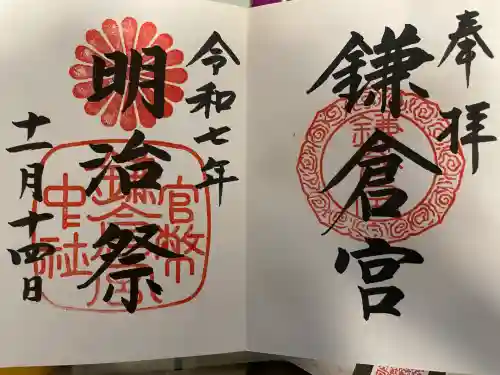 奉拝
鎌倉宮
令和七年
明治祭
十一月十四日
鎌倉宮
官幣
中社